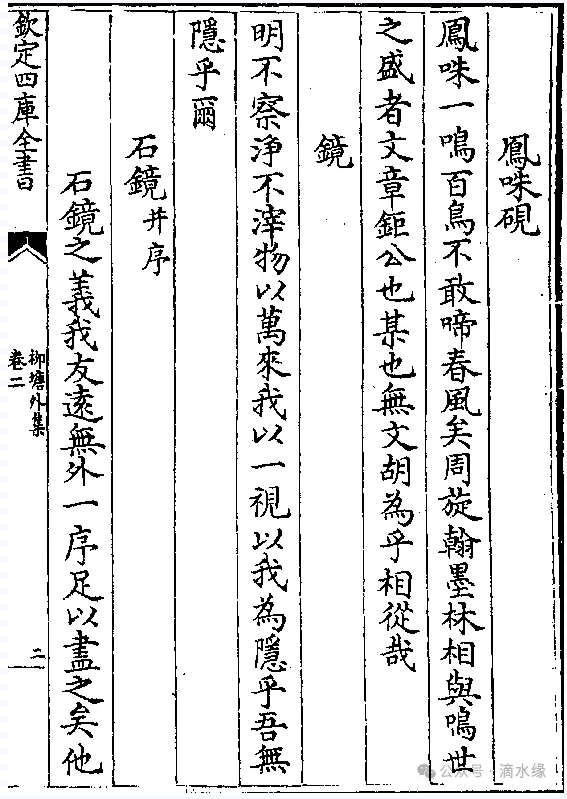 鳳咮硯
鳳咮一鳴百鳥不敢啼春風矣周旋翰墨林相與鳴世
之盛者文章鉅公也某也無文胡為乎相從哉
鏡
明不察淨不滓物以萬來我以一視以我為隱乎吾無
隱乎爾
石鏡并序
石鏡之義我友遠無外一序足以盡之矣他
欽定四庫全書
柳塘外集
卷二
二
公众号·滴水缘